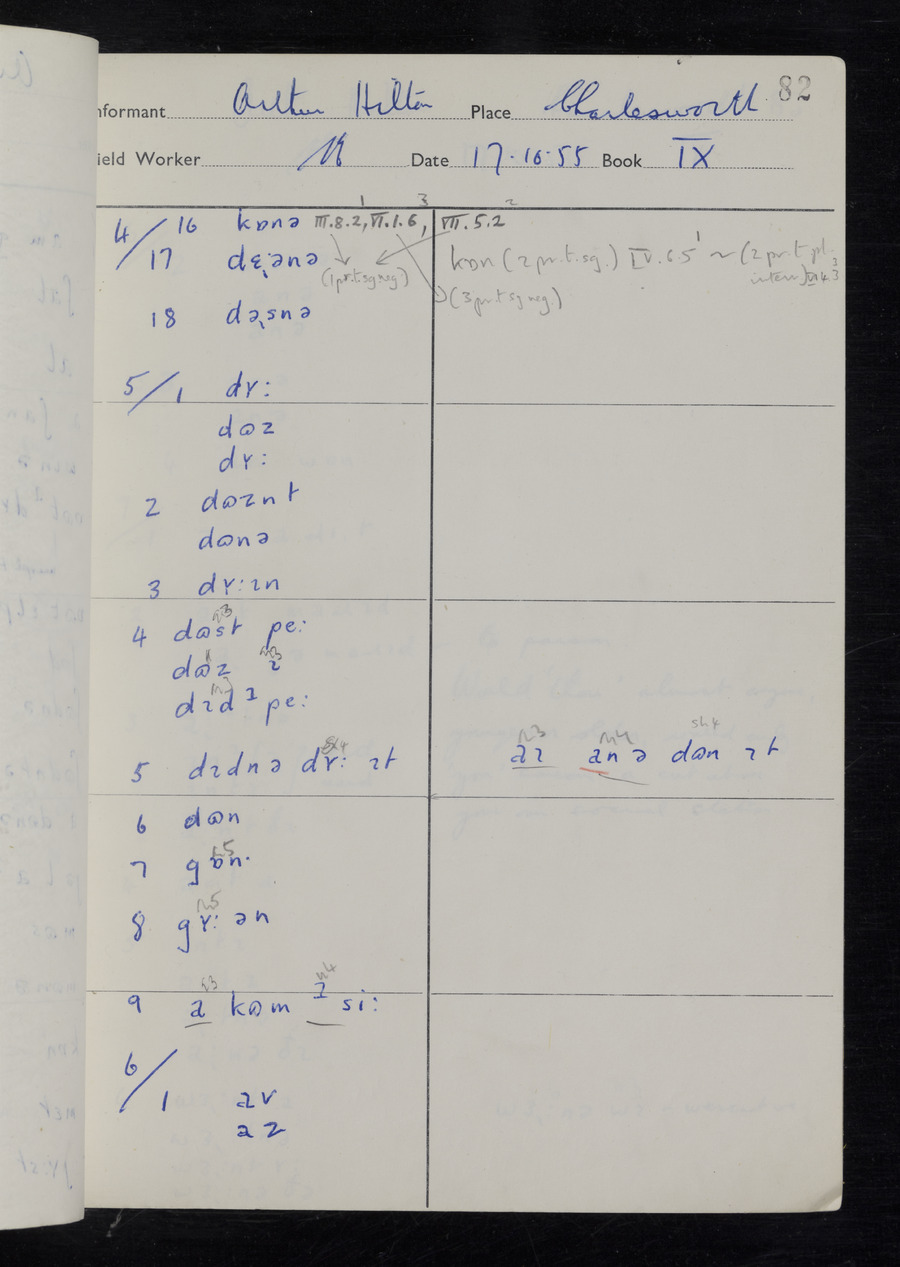 82
Informant Arthur Hilton Place Charlesworth
Field Worker Date 17·10·55 Book IX
1 3 2
4/16 kɒnə III.8.2, VI.1.6, VII.5.2
17 dɛ̣ənə kɒn (2 pr.t.sg.) IV.6.5¹ ~ (2 pr.t.pl.
(1 pr.t.sg neg.)
(3 pr.t sg neg.)
18 də̣snə
5/1 dʏ:
dɷz
dʏ:
2 dɷznt
dɷnə
3 dʏ:ɪn
4 dɷst pe:
dɷz ɪ
dɪd ¹ pe:
5 dɪdnə dʏ: ɪt aɪ anə dɷn ɪt
6 dɷn
7 gɒn·
8 gʏ: ən
9 a kɷm ¹ si:
6/1 av
az